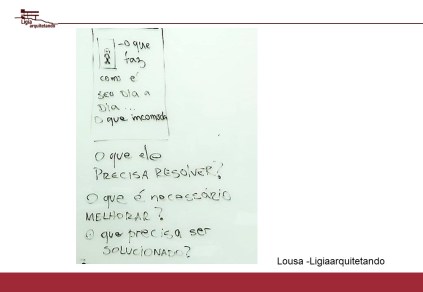 Ligia
arquitetando
- O que
faz
como é
seu dia a
Dia ...
O que incomoda
O que ele
PRECISA RESOLVER?
O que é necessário
MELHORAR?
O que precisa ser
SOLUCIONADO?
Lousa -Ligiaarquitetando